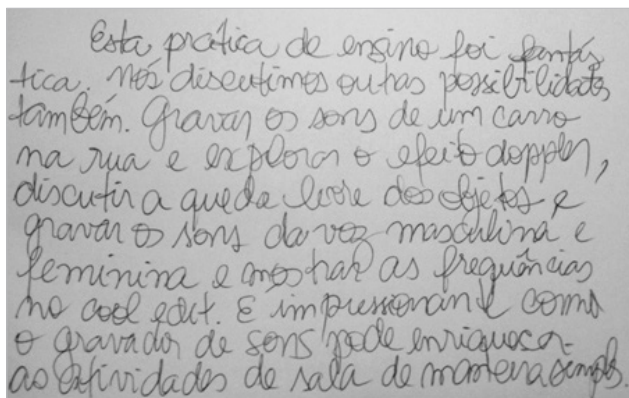 Esta prática de ensino foi fantás
tica. Nós discutimos outras possibilidades
também. Gravar os sons de um carro
na rua e explorar o efeito doppler,
discutir a queda livre dos objetos e
gravar os sons da voz masculina e
feminina e mostrar as frequências
no cool edit. É impressionante como
o gravador de sons pode enriquecer
as atividades de sala de maneira simples.